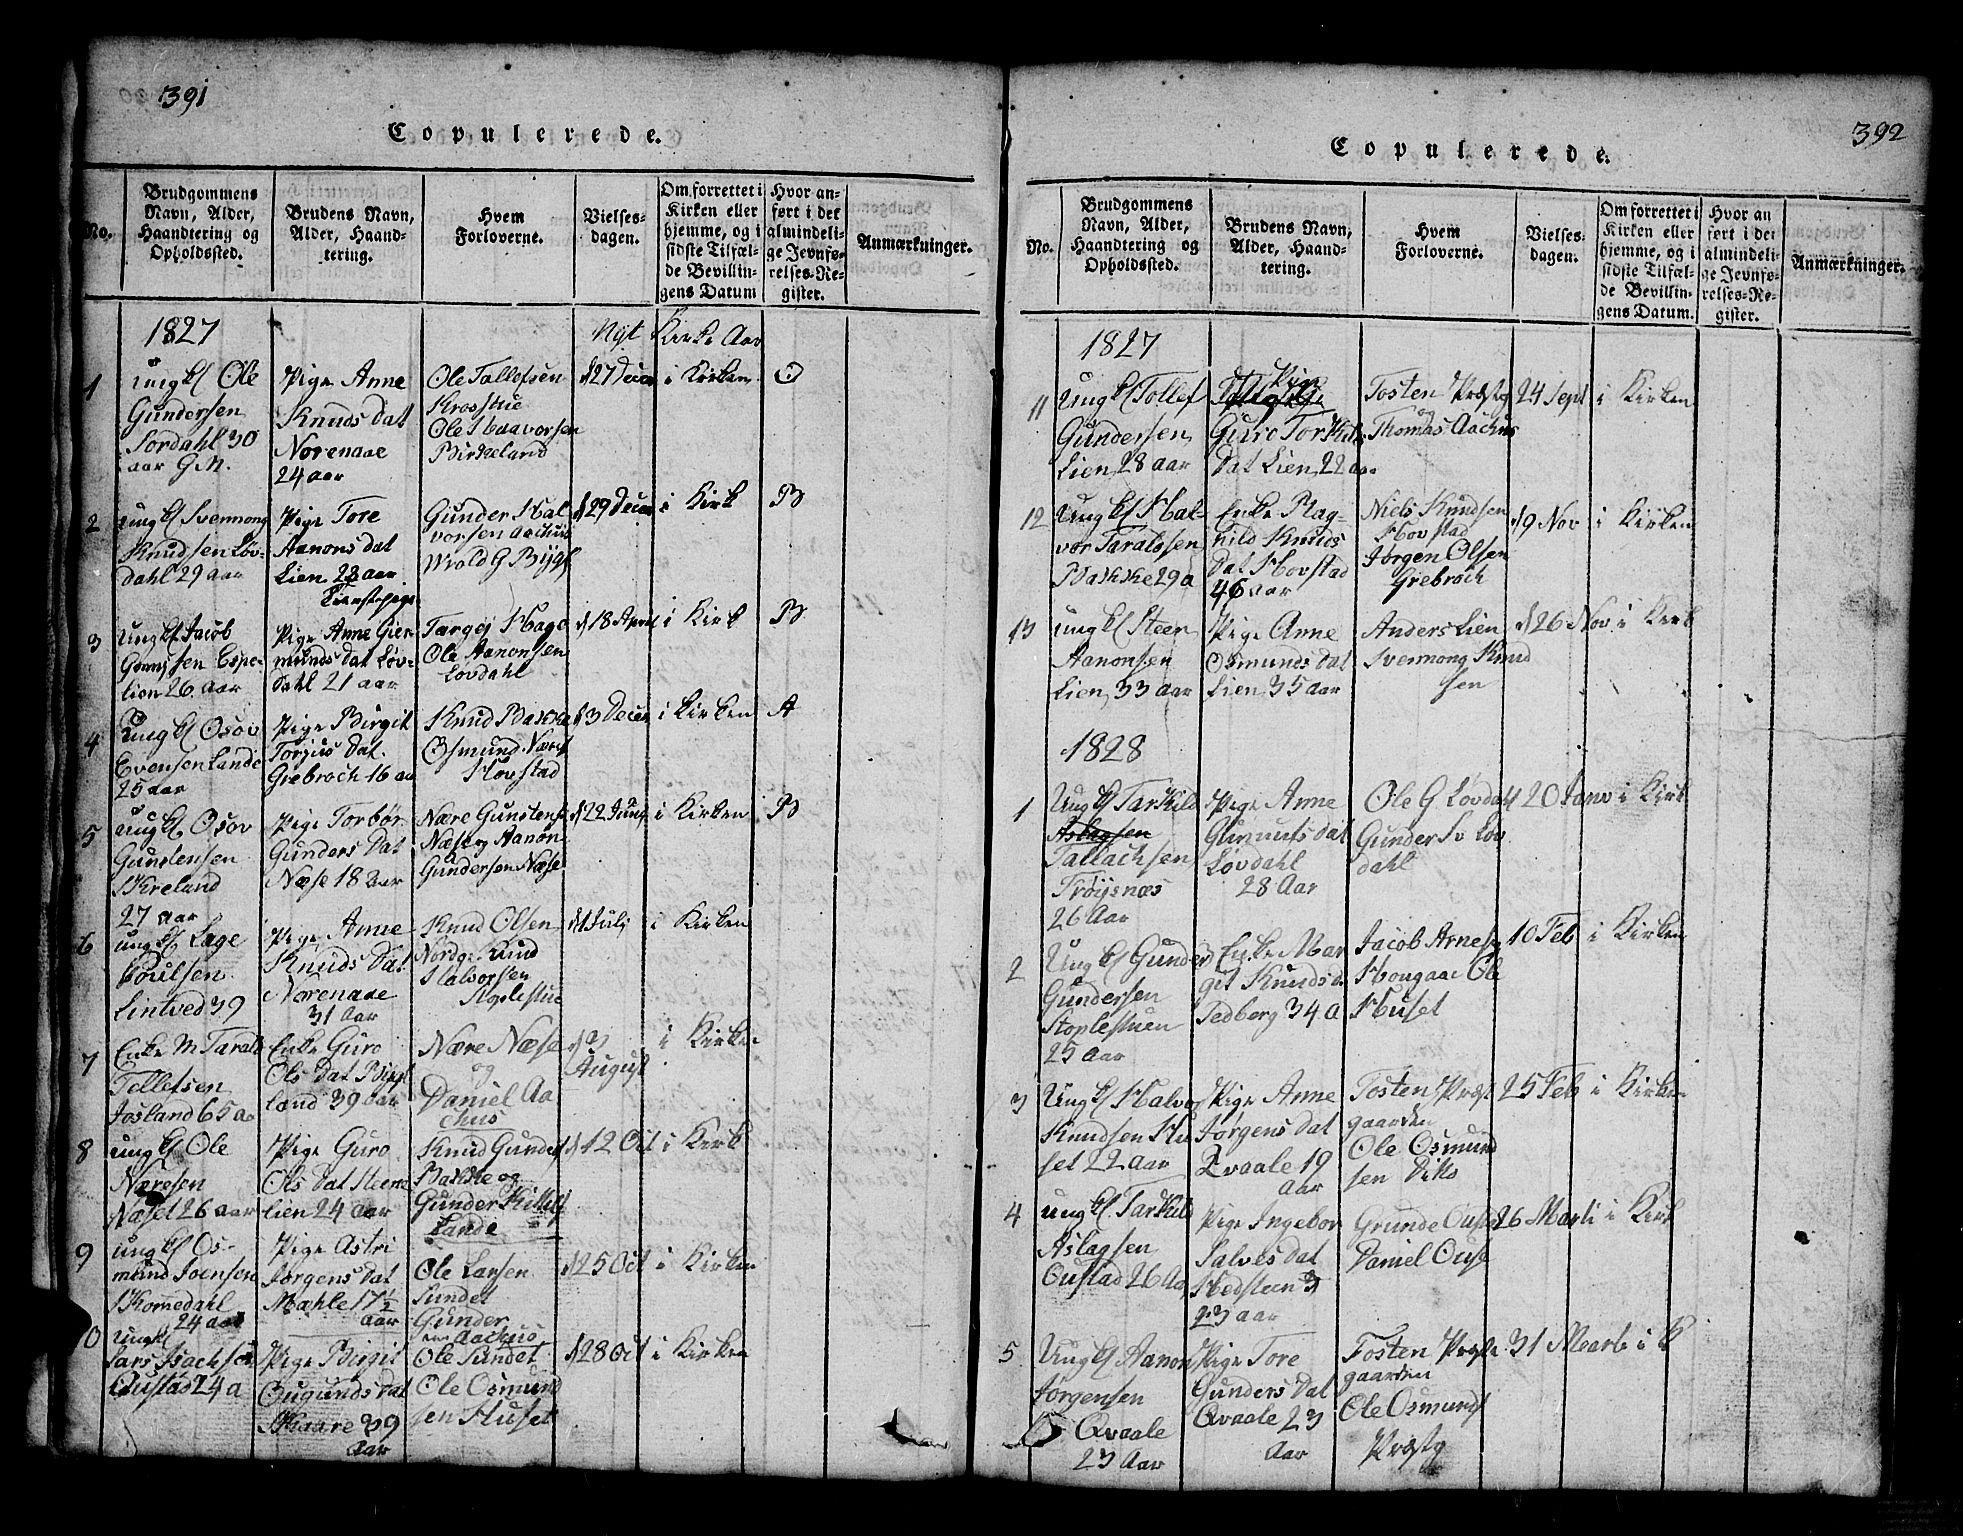 391
Copulerede.
No.
Brudgommens
Navn, Alder,
Haandtering og
Opholdssted.
Brudens Navn,
Alder, Haand-
tering.
Hvem
Forloverne.
Vielses-
dagen.
Om forrettet i
Kirken eller
hjemme, og i
sidste Tilfæl-
de Bevillin-
gens Datum
Hvor an-
ført i det
almindeli-
ge Jevnfø-
relses-Re-
gister.
Anmærkninger.
1827
Nyt Kirke Aar
1
ungk Ole
Gundersen
Sordahl 30
aar G.M.
Pige Anne
Knuds Dat
Norenaae
24 aar
Ole Tallefsen
Krosstue
Ole Haavorsen
Birkeland
d 27 Decm
i Kirken
O
2
ungk Svennong
Knudsen Løv-
dahl 29 aar
Pige Tore
Aanons dat
Lien 23 aar
Gunder Hal
vorsen Aachus
Wrold G Bygl
d 29 Decm
i Kirk
B
3
Ungk Jacob
Espe-
lien 26 aar
Pige Anne Gier-
munds dat Løv-
dahl 21 aar
Targej Hage
Ole Aanonsen
Lovdahl
d 18 April
i Kirk
B
4
Ungk Osov
Evensen Lande
25 aar
Pige Birgit
Torjus dat.
Grebroch 16 aa
Knud Bakke
Osmund Næres
Hovstad
d 3 Decm
i Kirken
A
5
Ungk Osov
Gunlensen
Skreland
27 aar
Pige Torbør
Gunders Dat
Næse 18 aar
Nære Gunstens
Næse og Aanon
Gundersen Næse
d 22 Juny
i Kirken
B
6
ungk Lage
Poulsen
Lintved 39
Pige Anne
Knuds Dat
Norenaae
31 Aar
Knud Olsen
Nordge Knud
Halvorsen
Stoplestue
d 1 Juli
i Kirken
7
Enke M Tarald
Tellefsen
Josland 65 aa
Enke Guro
Ols Dat Bygl
land 39 aar
Nære Næse
og
Daniel Aa
chus
d 3
August
i Kirken
8
ungk Ole
Næresen
Næset 26 aar
Pige Guro
Ols Dat Steene
lien 24 aar
Knud Gunders
Bakke og
Gunder Kittils
Lande
d 12 Oct
i Kirk
9
ungk Os-
mund Joensen
Skomedahl
24 aar
Pige Astri
Jorgens dat
Mæhle 17 1/2
aar
Ole Larsen
Sundet
Gunder
Aachus
d 25 Oct
i Kirken
10
Ungk
Lars Isachsen
Oustad 24 a
Pige Birgit
Ougunds dat
Skaare 39
aar
Ole Sundet
Ole Osmund
sen Huset
d 28 Oct
i Kirken
392
Copulerede.
No.
Brudgommens
Navn, Alder,
Haandtering og
Opholdssted.
Brudens Navn,
Alder, Haand-
tering.
Hvem
Forloverne.
Vielses-
dagen.
Om forrettet i
Kirken eller
hjemme, og i
sidste Tilfæl-
de Bevillin-
gens Datum.
Hvor an
ført i det
almindeli-
ge Jevnfø-
relses-Re-
gister.
Anmærkninger.
1827
11
Ungk Tollef
Gundersen
Lien 28 aar
Pige
Guro Torkils
Dat Lien 22 aar
Tosten Præstg
og
Thomas Aachus
24 Sept
i Kirken
12
Ungk Hal-
vor Taralssen
Bakke 29 a
Enke Rag-
nild Knuds
Dat Hovstad
46 aar
Niels Knudsen
Hovstad
Jørgen Olsen
Grebroch
d 9 Nov
i Kirken
13
ungk Steen
Aanonsen
Lien 33 aar
Pige Anne
Osmunds dat
Lien 35 aar
Anders Lien
Svennong Knud
sen
d 26 Nov.
i Kirk
1828
1
Ungk Tarkild
Aslagsen
Tallachsen
Trøysnæs
26 Aar
Pige Anne
Gunnufs dat
Løvdahl
28 Aar
Ole G Løvdal
Gunder Sv Løv
dahl
20 Janv
i Kirk
2
Ungk Gunder
Gundersen
Stoplestuen
25 aar
Enke Mar
git Knuds d
Sedberg 34 a
Jacob Arnesen
Hougaae Ole
Huset
10 Feb
i Kirken
3
Ungk Halvo
Knudsen Hu
set 22 aar
Pige Anne
Jørgens dat
Qvaale 19
aar
Tosten Præst
gaarden
Ole Osmund
sen Ditto
25 Feb
i Kirken
4
ungk Tarkild
Aslagsen
Oustad 26 Aa
Pige Ingebor
Salves dat
Hedsteen
23 aar
Grunde Ouse
Daniel Ouse
26 Marti
i Kirk
5
Ungk Aanon
Jørgensen
Qvaale
23 Aar
Pige Tore
Gunders Dat
Qvaale 23
Aar
Tosten Præste
gaarden
Ole Osmunds
Præstg
31 Marti
i K